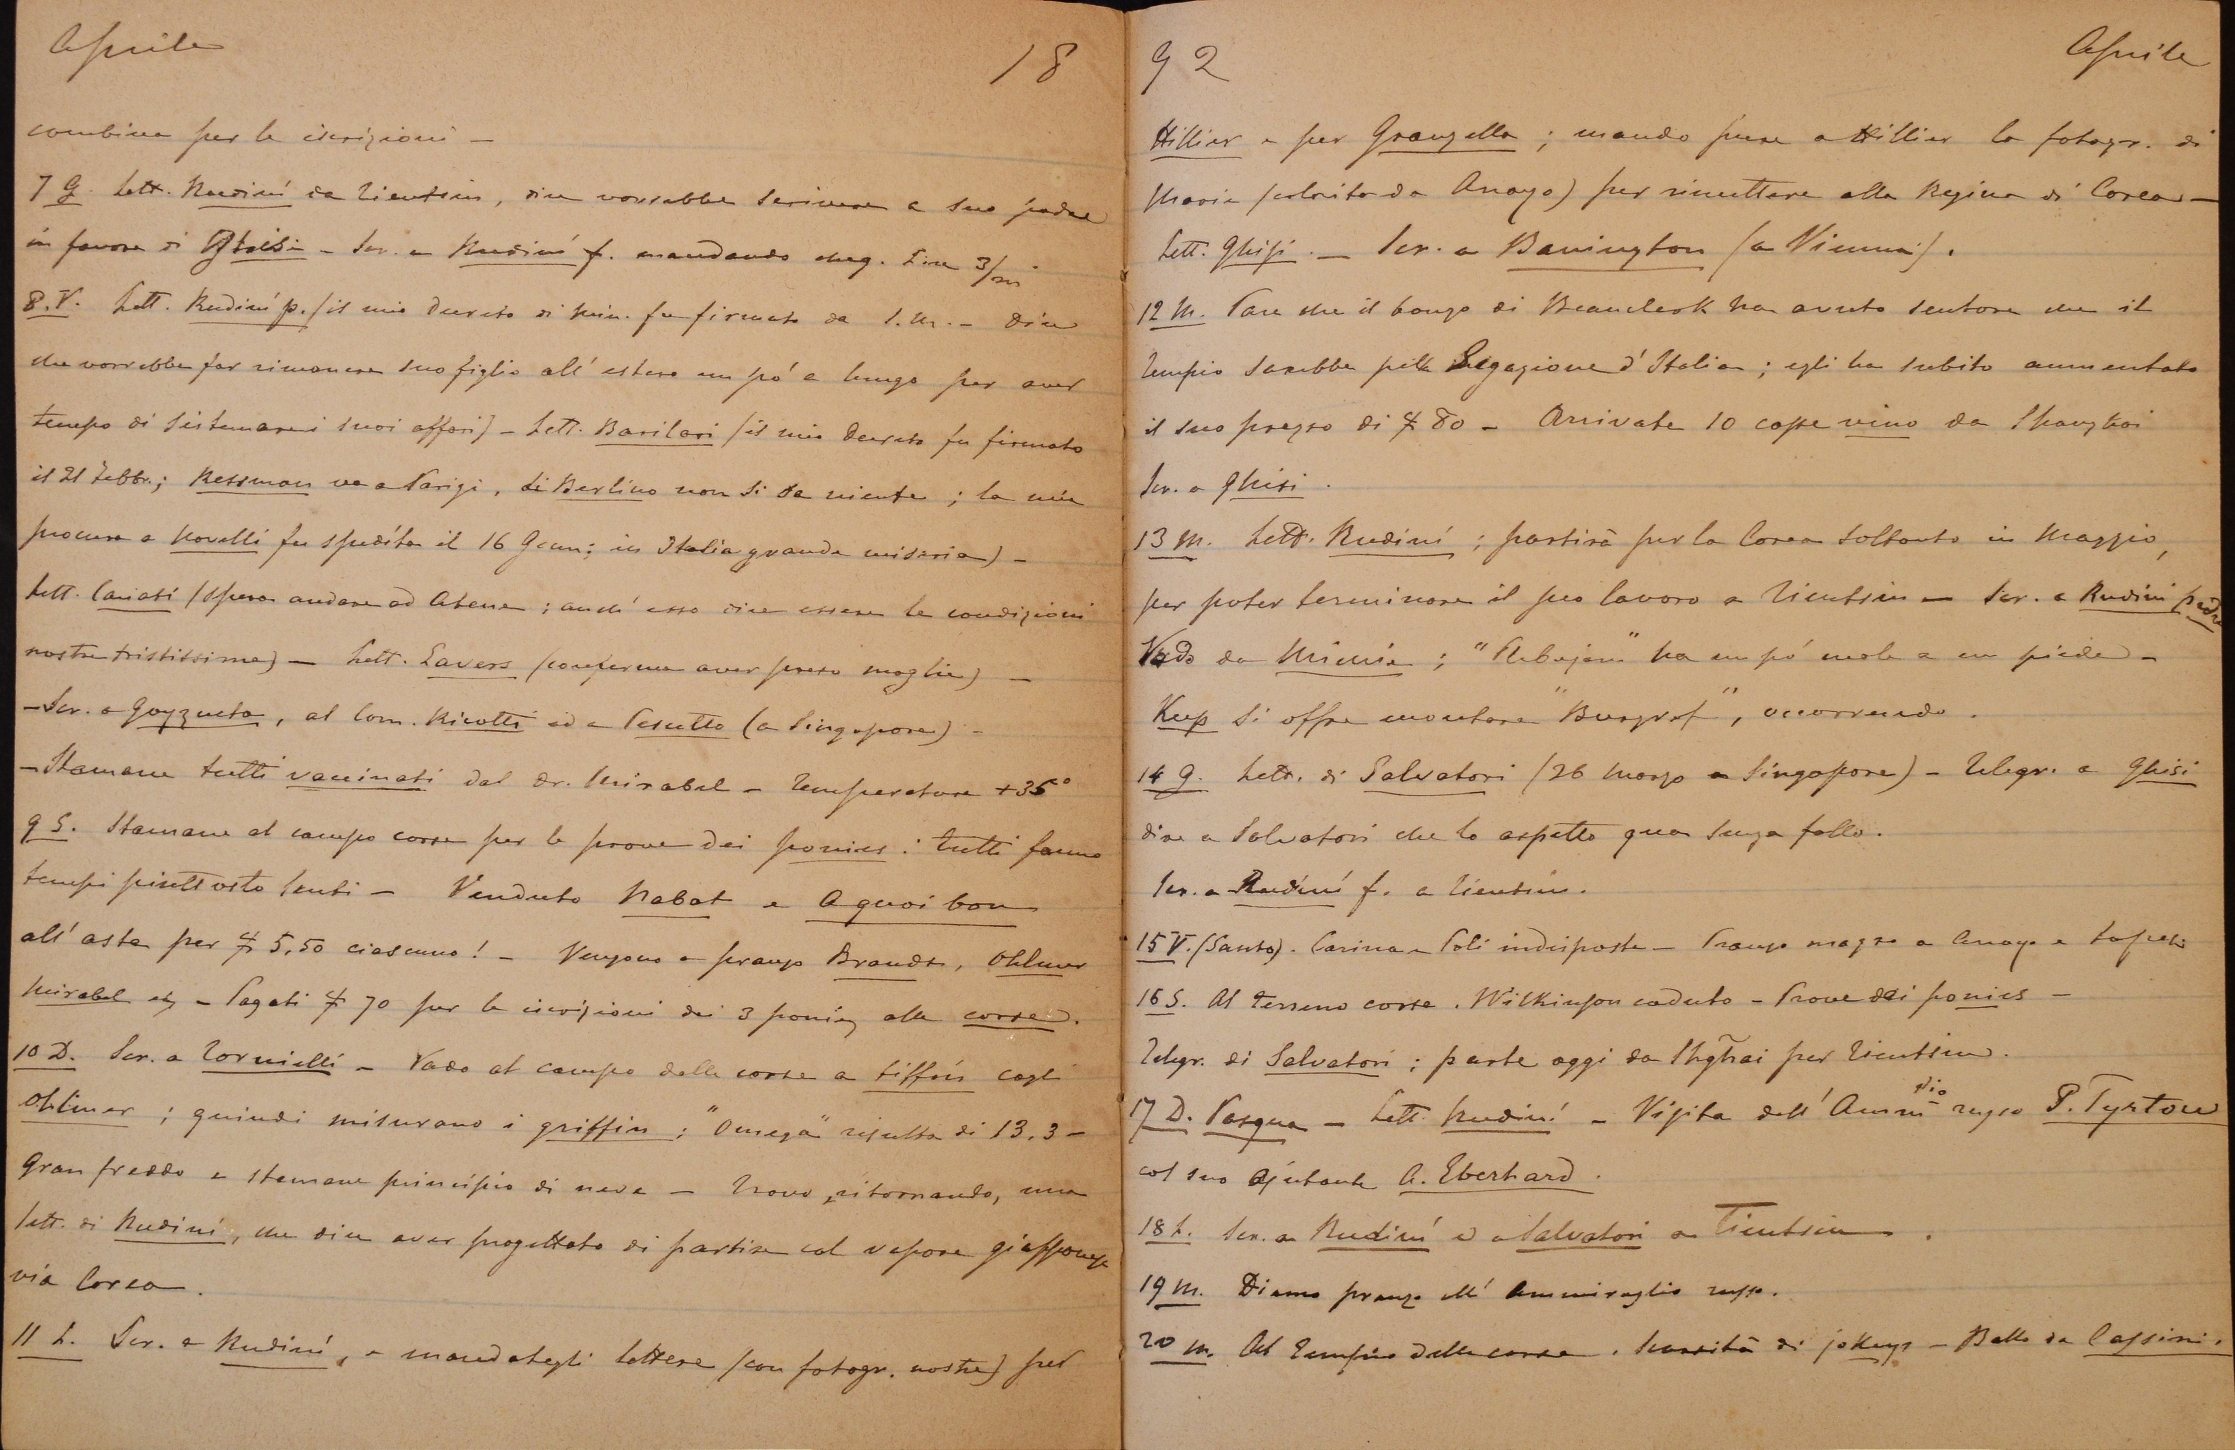 Aprile 18
combina per le iscrizioni —
7 G. Lett. Rudiní da Tientsin, dice vorrebbe scrivere a suo padre
in favore di Ghisi – Scr. a Rudiní f. mandando cheq. Lire 3/m
8. V. Lett. Rudiní p. (il mio decreto di Min. fu firmato da S. M. – Dice
che vorrebbe far rimanere suo figlio all' estero un pó a lungo per aver
tempo di sistemare i suoi affari) – Lett. Barilari (il mio decreto fu firmato
il 21 Febbr.; Ressman va a Parigi, di Berlino non si sa niente ; la mia
procura a Novelli fu spedita il 16 Genn; in Italia grande miseria) –
Lett. Cariati (spera andare ad Atene ; anch' esso dice essere le condizioni
nostre tristissime) — Lett. Lavers (conferma aver preso moglie) —
– Scr. a Goyzueta, al Com. Ricotti ed a Pesutto (a Singapore) –
– Stamane tutti vaccinati dal dr. Mirabel – Temperatura + 35°
9 S. Stamane al campo corse per le prove dei ponies : tutti fanno
tempi piuttosto lenti – Venduto Nabat e Aquoibon
all' asta per $ 5,50 ciascuno ! – Vengono a pranzo Brandt, Ohlmer
Mirabel etc – Pagati $ 70 per le iscrizioni dei 3 ponies alle corse.
10 D. Scr. a Tornielli – Vado al campo delle corse a tiffin cogli
Ohlmer ; quindi misurano i griffin ; "Omega" risulta di 13,3 –
Gran freddo e stamane principio di neve – Trovo, ritornando, una
lett. di Rudiní, che dice aver progettato di partire col vapore giapponese
via Corea.
11 L. Scr. a Rudiní, e mandategli lettere (con fotogr. nostre) per
92 Aprile
Hillier e per Granzella ; mando pure a Hillier la fotogr. di
Maria (colorita da Anayo) per rimettere alla Regina di Corea –
Lett. Ghisi. — Scr. a Bavington (a Vienna).
12 M. Pare che il bonzo di Beauclerk ha avuto sentore che il
tempio sarebbe pella Legazione d' Italia ; egli ha subito aumentato
il suo prezzo di $ 80 – Arrivate 10 casse vino da Shanghai
Scr. a Ghisi.
13 M. Lett. Rudiní ; partirà per la Corea soltanto in Maggio,
per poter terminare il suo lavoro a Tientsin – Scr. a Rudini padre
Vado da Mimie ; "Rebujon" ha un pó male a un piede –
Kup si offre montare "Burgraf", occorrendo.
14 G. Lett. di Salvatori (26 Marzo a Singapore) – Telegr. a Ghisi
dire a Salvatori che lo aspetto qua senza fallo.
Scr. a Rudiní f. a Tientsin.
15 V. (Santo). Carina e Poli indisposte – Pranzo magro a Anayo e
16 S. Al terreno corse. Wilkinson caduto – Prove dei ponies –
Telegr. di Salvatori ; parte oggi da Shghai per Tientsin.
17 D. Pasqua – Lett. Rudiní – Visita dell' Ammglio russo P. Tyrtow
col suo ajutante A. Eberhard.
18 L. Scr. a Rudiní e a Salvatori a Tientsin.
19 M. Diamo pranzo all' Ammiraglio russo.
20 M. Al Tempio delle corse. Scarsità di jokeys – Ballo da Cassini.